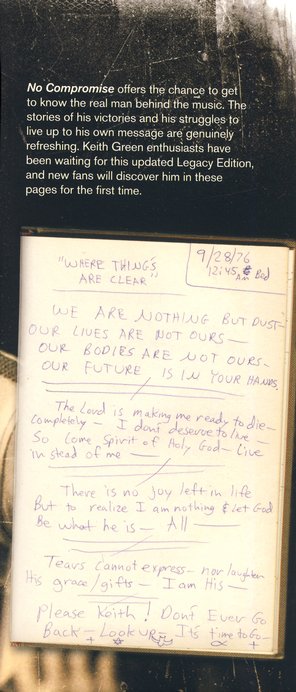 No Compromise offers the chance to get
to know the real man behind the music. The
stories of his victories and his struggles to
live up to his own message are genuinely
refreshing. Keith Green enthusiasts have
been waiting for this updated Legacy Edition,
and new fans will discover him in these
pages for the first time.
9/28/76
12:45 AM & Bed
"WHERE THINGS
ARE CLEAR"
WE ARE NOTHING BUT DUST—
OUR LIVES ARE NOT OURS—
OUR BODIES ARE NOT OURS—
OUR FUTURE IS IN YOUR HANDS.
The Lord is making me ready to die—
Completely — I don't deserve to live —
So Come Spirit of Holy God — Live
in stead of me —
There is no joy left in life
But to realize I am nothing & let God
Be what he is — All —
Tears Cannot express — nor laughter
His grace/gifts — I am His —
Please Keith! Don't Ever Go
Back — Look UP! It's time to Go —